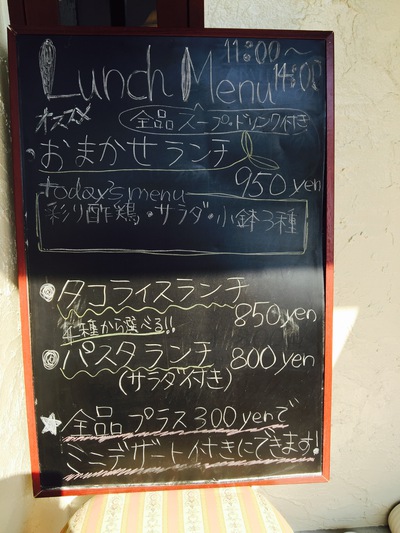 Lunch Menu
11:00〜
14:00
オススメ
全品スープ・ドリンク付き
おまかせランチ
950yen
today's menu
彩り酢鶏・サラダ・小鉢3種
タコライスランチ
850yen
種から選べる!!
パスタランチ 800yen
(サラダ付き)
全品プラス300yenで
ミニデザート付きにできます!